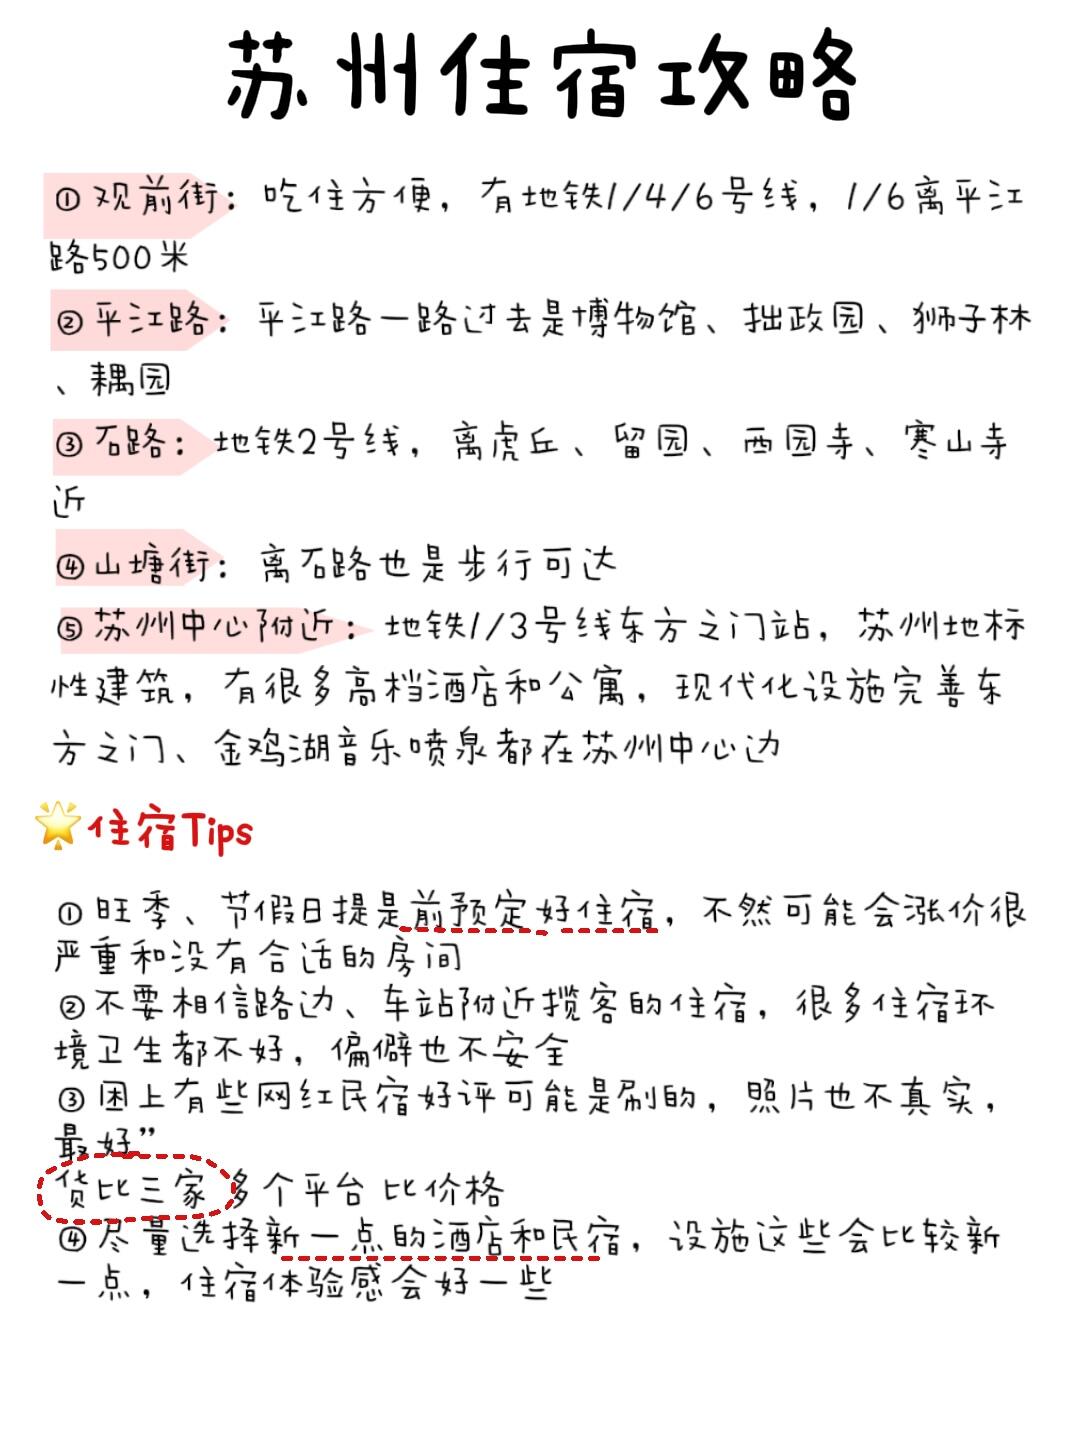 苏州住宿攻略
①观前街：吃住方便，有地铁1/4/6号线，1/6离平江
路500米
②平江路：平江路一路过去是博物馆、拙政园、狮子林
、耦园
③石路：地铁2号线，离虎丘、留园、西园寺、寒山寺
近
④山塘街：离石路也是步行可达
⑤苏州中心附近：地铁1/3号线东方之门站，苏州地标
性建筑，有很多高档酒店和公寓，现代化设施完善东
方之门、金鸡湖音乐喷泉都在苏州中心边
住宿Tips
①旺季、节假日提是前预定好住宿，不然可能会涨价很
严重和没有合适的房间
②不要相信路边、车站附近揽客的住宿，很多住宿环
境卫生都不好，偏僻也不安全
③困上有些网红民宿好评可能是刷的，照片也不真实，
最好”
货比三家多个平台 比价格
④尽量选择新一点的酒店和民宿，设施这些会比较新
一点，住宿体验感会好一些